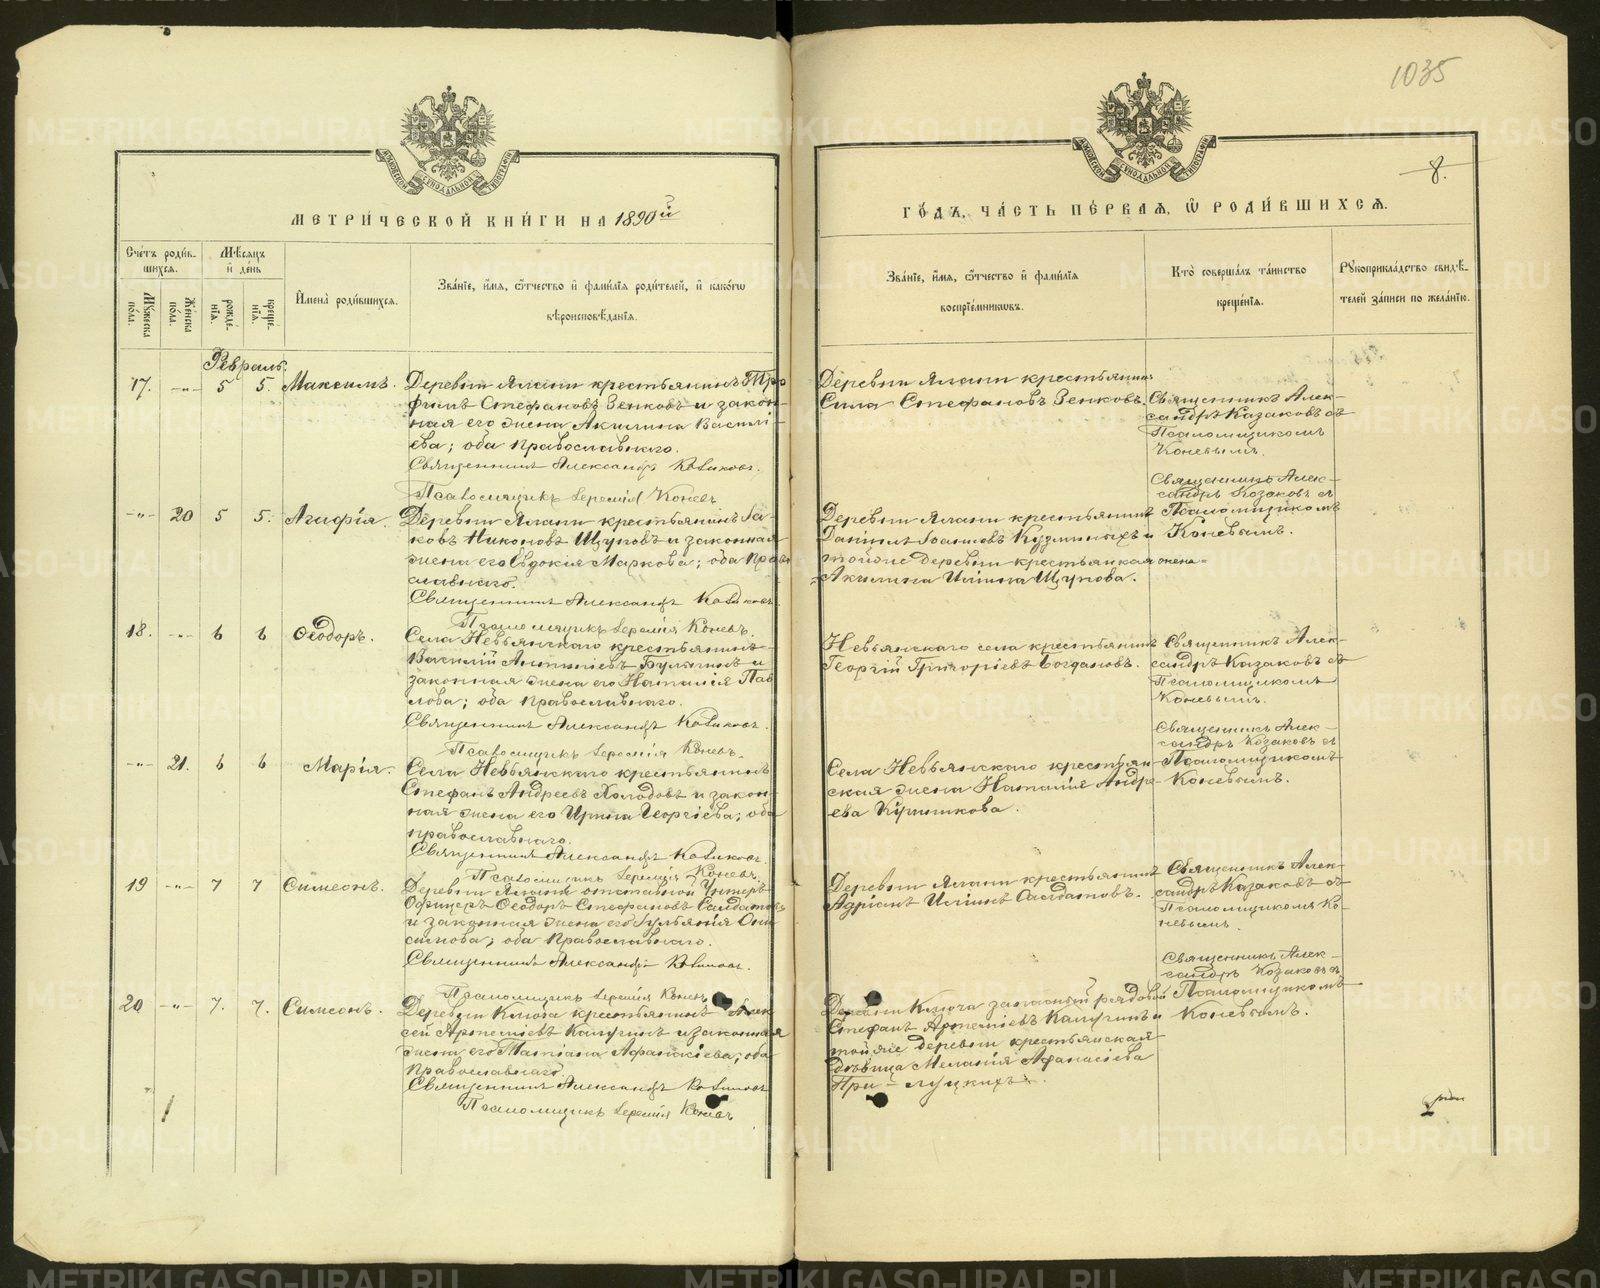 1035
8.
МЕТРИ́ЧЕСКОЙ КНИ́ГИ НА 1890й
ГО́ДЪ, ЧА́СТЬ ПЕ́РВАѦ, Ѿ РОДИ́ВШИХСѦ.
Сче́тъ роди́в-
шихсѧ.
Мꙋ́жеска по́ла.
Же́нска по́ла.
Мѣ́сѧцъ
и҆ де́нь
рожде́-
нїѧ.
креще́-
нїѧ.
И҆мена̀ роди́вшихсѧ.
Зва́нїе, и҆́мѧ, ѻ҆́тчество и҆ фами́лїѧ роди́телей, и҆ како́гѡ
вѣроисповѣ́данїѧ.
Зва́нїе, и҆́мѧ, ѻ҆́тчество и҆ фами́лїѧ
воспрїе́мникѡвъ.
Кто̀ соверша́лъ та́инство
креще́нїѧ.
Рꙋкоприкла́дство свидѣ́-
телей за́писи по жела́нїю.
Февраль.
17. -"- 5 5. Максимъ.
Деревни Ялани крестьянинъ Тро-
фимъ Стефановъ Зенковъ и закон-
ная его жена Акилина Василі-
ева; оба православнаго.
Священникъ Александръ Козаковъ.
Псаломщикъ Іеремія Коневъ
Деревни Ялани крестьянинъ
Сила Стефановъ Зенковъ.
Священникъ Алек-
сандръ Казаковъ съ
Псаломщикомъ
Коневымъ.
-"- 20 5 5. Агафія.
Деревни Ялани крестьянинъ Іа-
ковъ Никоновъ Щуповъ и законная
жена его Евдокія Маркова; оба пра-
славнаго.
Священникъ Александръ Козаковъ.
Псаломщикъ Іеремія Коневъ.
Деревни Ялани крестьянинъ
Даніилъ Іоанновъ Кузминыхъ и
тойже деревни крестьянская жена
Акилина Иліина Щупова.
Священникъ Алек-
сандръ Козаковъ съ
Псаломщикомъ
Коневымъ.
18. -"- 6 6 Ѳеодоръ.
Села Невьянскаго крестьянинъ
Василій Антипіевъ Булыгинъ и
законная жена его Наталія Пав-
лова; оба православнаго.
Священникъ Александръ Козаковъ.
Псаломщикъ Іеремія Коневъ.
Невьянскаго села крестьянинъ
Георгій Григоріевъ Богдановъ.
Священникъ Алек-
сандръ Казаковъ съ
Псаломщикомъ
Коневымъ.
-"- 21. 6 6 Марія.
Села Невьянскаго крестьянинъ
Стефанъ Андреевъ Холодовъ и закон-
ная жена его Ирина Георгіева; оба
православнаго.
Священникъ Александръ Козаковъ.
Псаломщикъ Іеремія Коневъ.
Села Невьянскаго крестьян-
ская жена Наталія Андре-
ева
Священникъ Алек-
сандръ Козаковъ съ
Псаломщикомъ
Коневымъ.
19 -"- 7 7 Симеонъ.
Деревни Ялани отставной Унтеръ
Офицеръ Ѳеодоръ Стефановъ Салдатовъ
и законная жена его Іульянія Они-
симова; оба православнаго.
Священникъ Александръ Козаковъ.
Псаломщикъ Іеремія Коневъ
Деревни Ялани крестьянинъ
Адріанъ Иліинъ Салдатовъ.
Священникъ Алек-
сандръ Казаковъ съ
Псаломщикомъ Ко-
невымъ.
20 -"- 7. 7. Симеонъ.
Деревни Ключа крестьянинъ Алек-
сей Артеміевъ Калугинъ и законная
жена его Татіана Афанасіева; оба
православнаго.
Священникъ Александръ Козаковъ
Псаломщикъ Іеремія Коневъ
Деревни Ключа запасный рядовой
Стефанъ Артеміевъ Калугинъ и
тойже деревни крестьянская
дѣвица Меланія Афанасіева
При-луцкихъ.
Священникъ Алек-
сандръ Козаковъ съ
Псаломщикомъ
Коневымъ.
METRIKI.GASO-URAL.RU